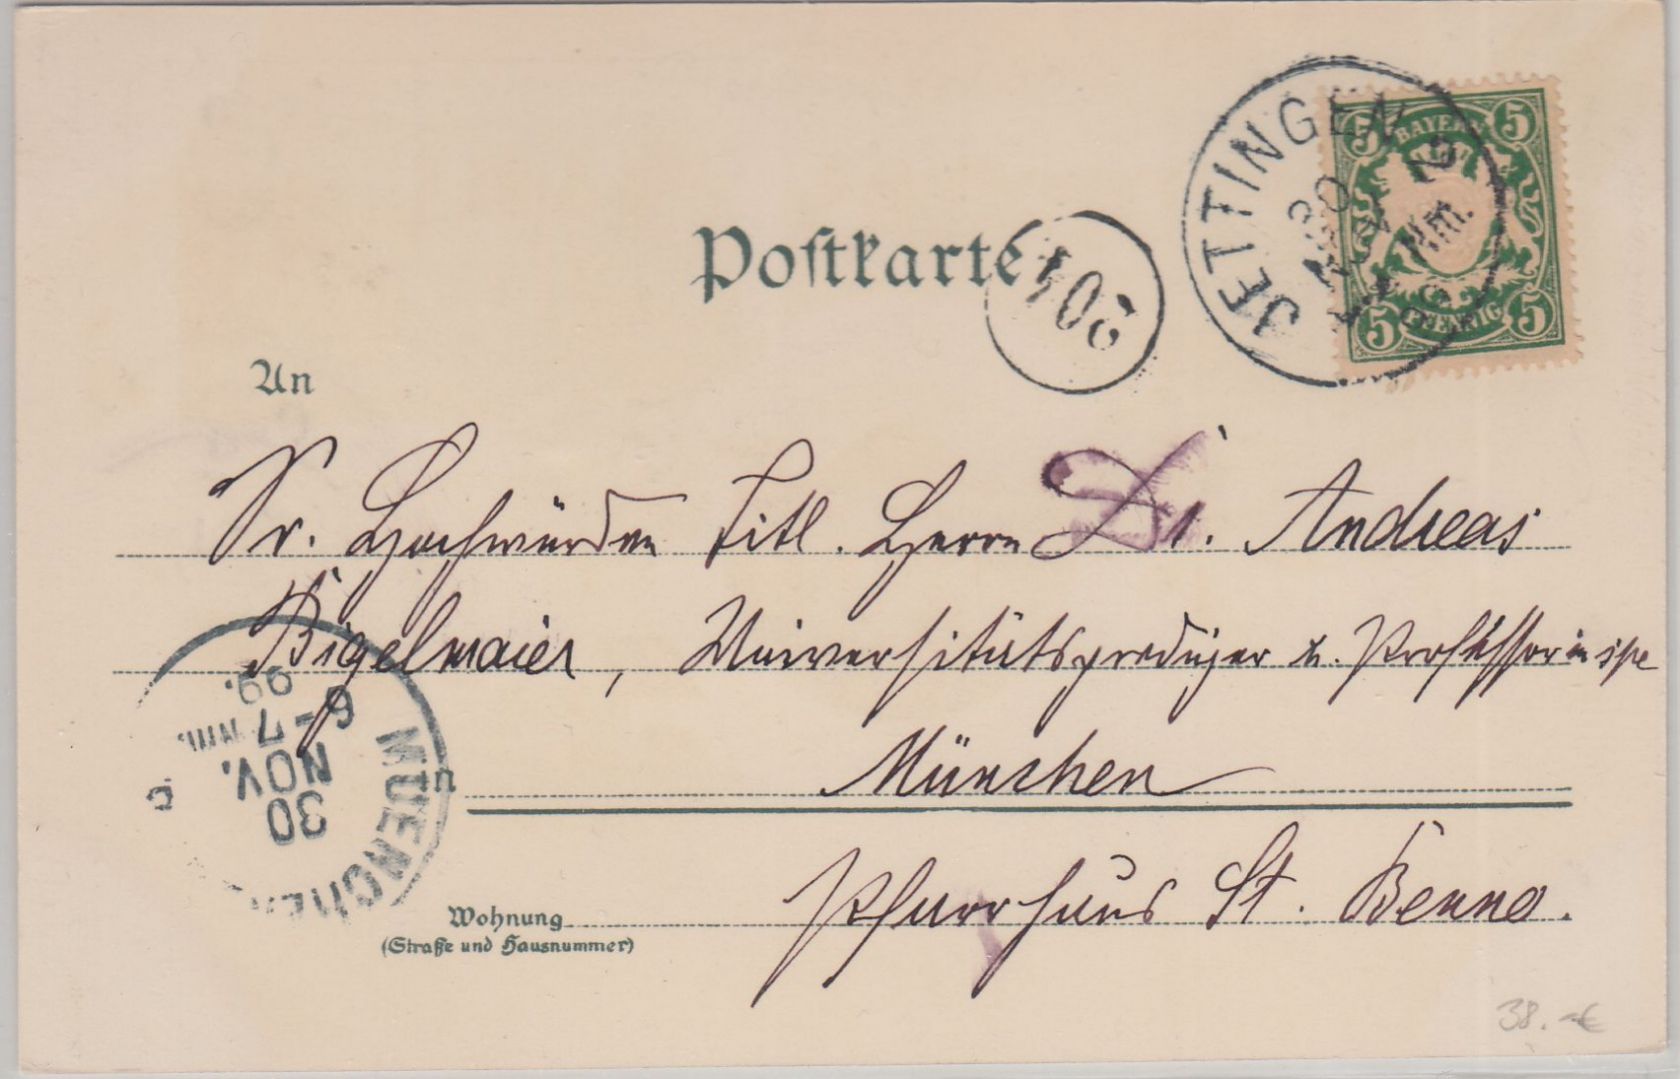 JETTINGEN
30
NOV
2
NM.
BAYERN
5 5
5 5
PFENNIG
Postkarte
201
An
Sr. Hochwürden Titl. Herrn Dr. Andreas
Bigelmaier, Universitätsprediger u. Professor in spe
München
n
MUENCHEN
30
NOV.
6-7 NM.
99.
Pfarrhaus St. Benno.
Wohnung
(Straße und Hausnummer)
38.-€